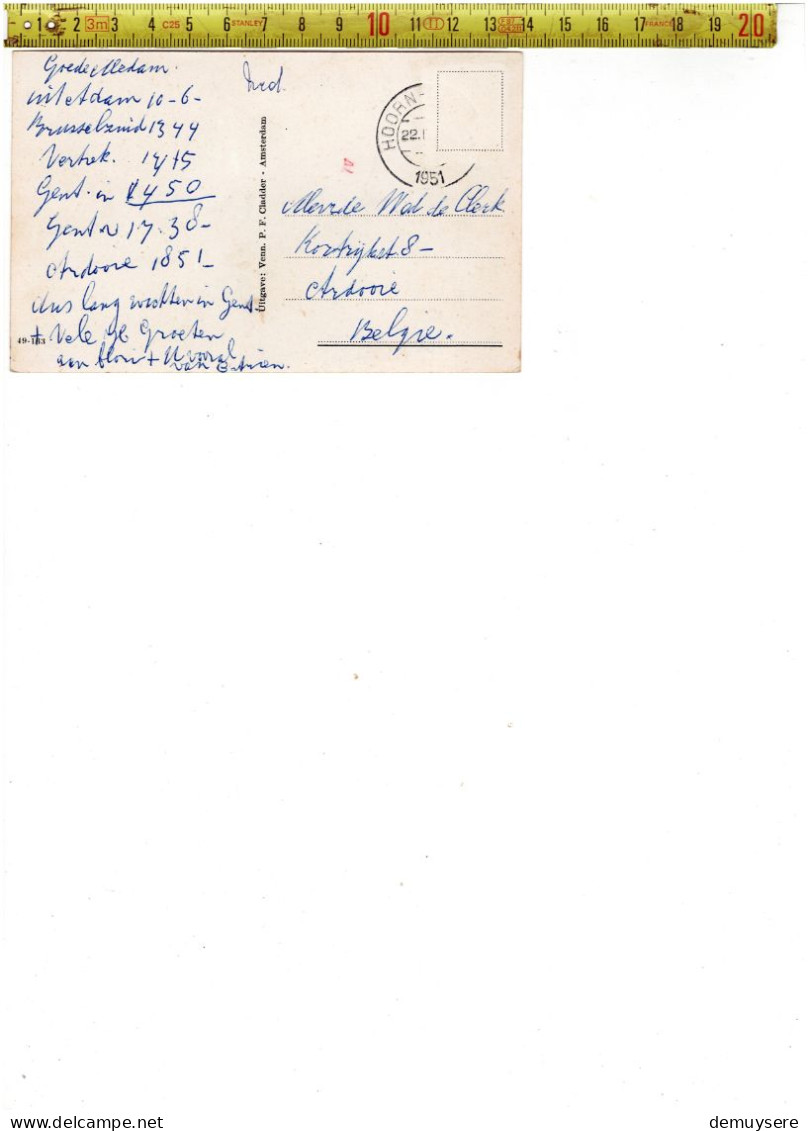 1 2 3m 4 C25 5 6 STANLEY 7 8 9 10 11 12 13 14 15 16 17 FRANCE 18 19 20
Goede Madam.
uit Adam 10-6-
Brusselzuid 1344
Vertrek.
Gent in 1450
Gent 17.38-
Ardooie 1851-
dus lang wachten in Gent
+ Vele Groeten
aan + vooral
van
49-163
Uitgave: Venn. P. F. Cladder - Amsterdam
HOORN
22.
1951
Mevr de Wed de Clerk
Kortrijkst 8-
Ardooie
Belgie.
delcampe.net
demuysere